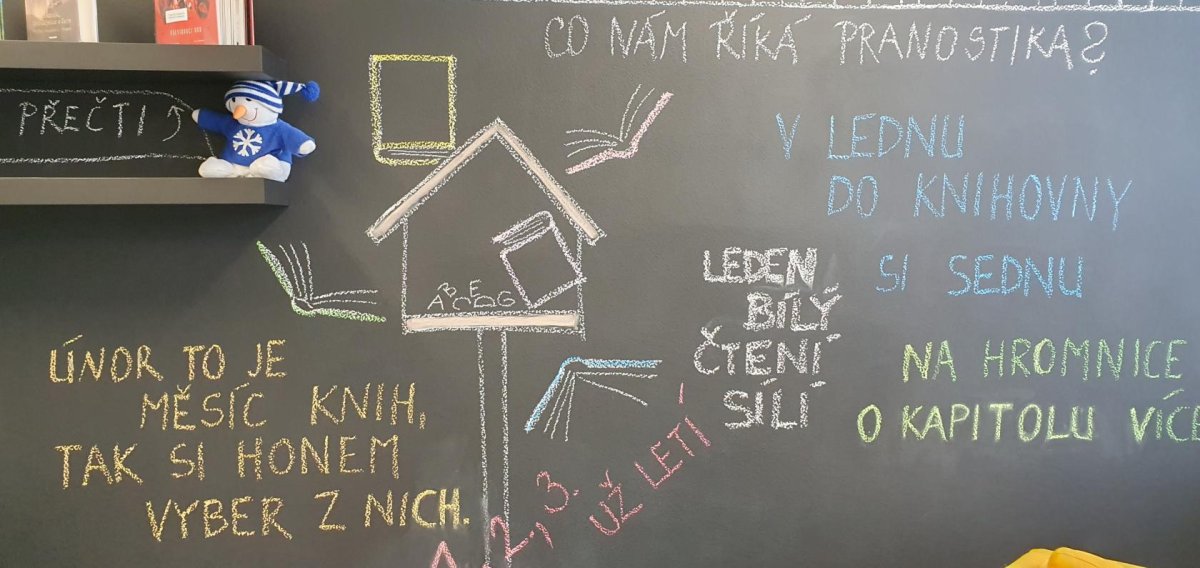 CO NÁM ŘÍKÁ PRANOSTIKA?
PŘEČTI
V LEDNU
DO KNIHOVNY
SI SEDNU
LEDEN
BÍLÝ
ČTENÍ
SÍLÍ
NA HROMNICE
O KAPITOLU VÍCE
A B C D E G
ÚNOR TO JE
MĚSÍC KNIH,
TAK SI HONEM
VYBER Z NICH.
1, 2, 3.
UŽ LETÍ